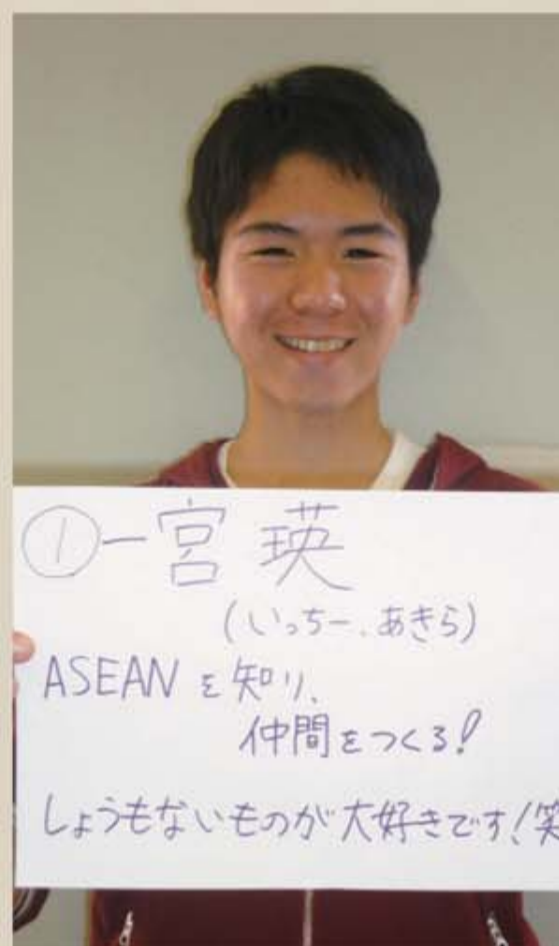 ①一宮 瑛
(いっちー、あきら)
ASEANを知り、
仲間をつくる!
しょうもないものが大好きです!笑